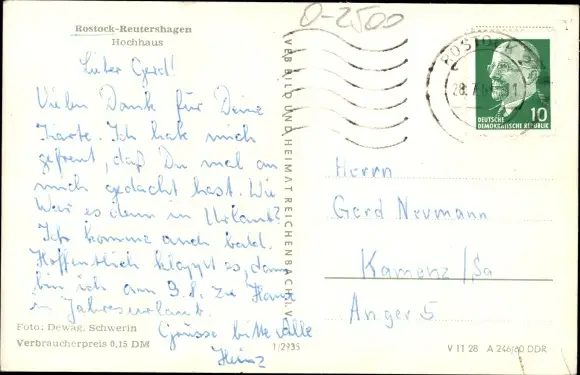 Rostock-Reutershagen
Hochhaus
0-2500
Lieber Gerd!
Vielen Dank für Deine
Karte. Ich habe mich
gefreut, daß Du mal an
mich gedacht hast. Wie
War es denn in Urlaub?
Ich komme auch bald.
Hoffentlich klappt es, dann
bin ich am 9.8. zu Hause
in Jahresurlaub.
Grüsse bitte Alle
Heinz
Foto: Dewag, Schwerin
Verbraucherpreis 0,15 DM
1/2935
VEB BILD UND HEIMAT REICHENBACH I. V.
ROSTOCK
DEUTSCHE
DEMOKRATISCHE REPUBLIK
10
Herrn
Gerd Neumann
Kamenz/Sa
Anger 5
V 11 28 A 246/60 DDR